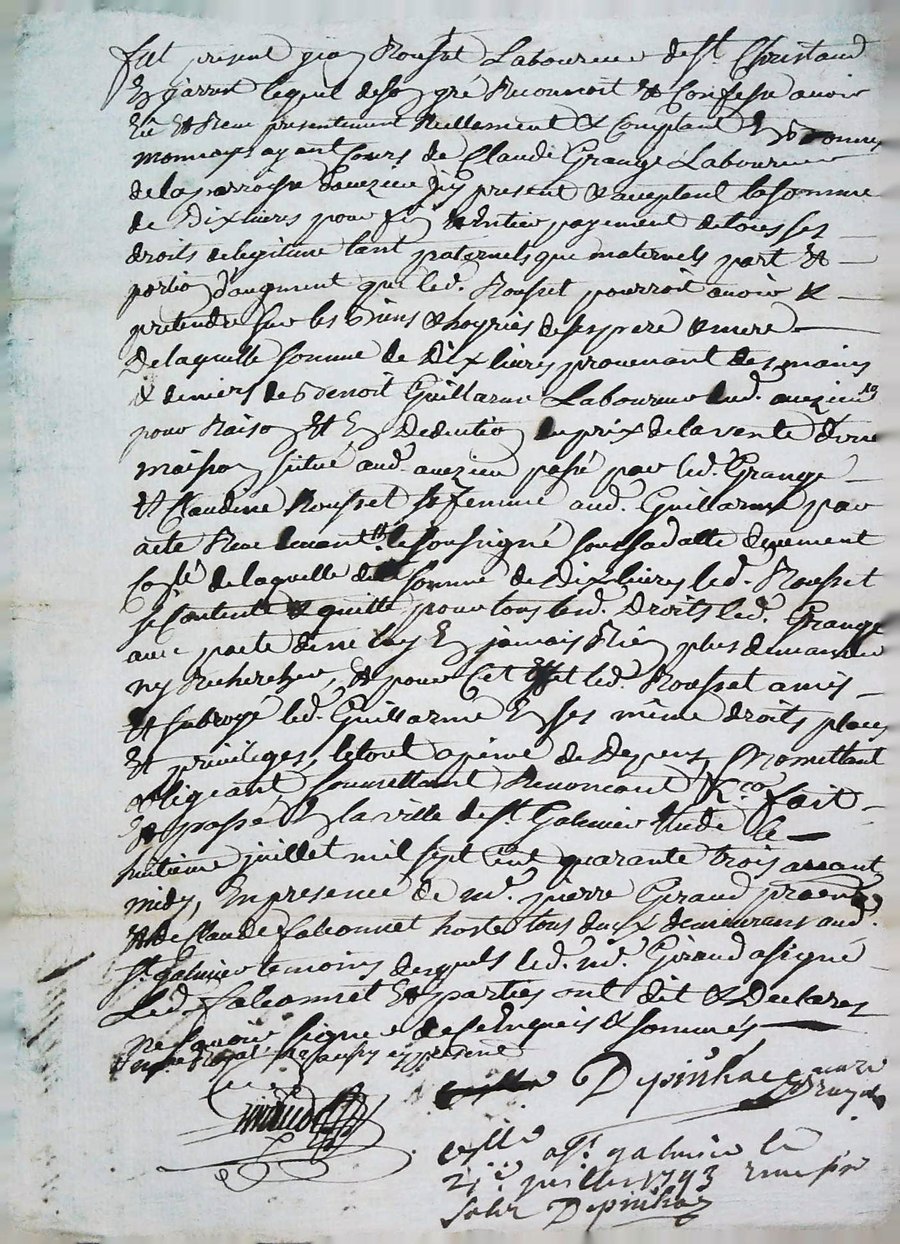 fut présent jean Rouset Laboureur de st Christaud
En jarret lequel de son gré Reconnoit et Confesse avoir
Eü et Receu presentement Reellement & Comptant En bonnes
monnoyes ayant Cours de Claude Grange Laboureur
de la parroisse daveizieu jcy present & acceptant la somme
de Dix livres pour fin & entier payement de tous ses
droits de legitime tant paternels que maternels part &
portion d'augment que led. Rouset pourroit avoir &
pretendre sur les Biens & hoyries de ses pere & mere
De laquelle somme de Dix livres provenant des mains
& deniers de Benoit Guillarme Laboureur dud. aveizieu
pour Raison Et En Deduction du prix de la vente d'une
maison situé aud. aveizieu passé par led. Grange
& Claudine Rousset sa femme aud. Guillarme par
acte Receu devant le soussigné sous sa datte deuement
Coslé de laquelle somme de Dix livres led. Rousset
se Contente & quitte pour tous lesd. Droits led. Grange
avec pacte de ne luy En jamais Rien plus demander
ny Rechercher, & pour Cet Effet led. Rousset a mis
& subrogé led. Guillarme En ses même droits place
Et privileges, le tout a peine de Depens, Promettant
obligeant soumettant Renoncant &ca fait
& passé En la ville de st Galmier Etude le
huitieme juillet mil sept Cent quarante trois avant
midy, En presence de me. pierre Giraud
& de Claude falconnet hoste tous deux demeurans aud.
st galmier temoins desquels led. me. Giraud a signé
Led. falconnet Et parties ont dit & Declarés
ne sçavoir signer de ce Enquis & sommés
Giraud
Depinhac
Collé a st galmier le
21e juillet 1743
solz Depinhac